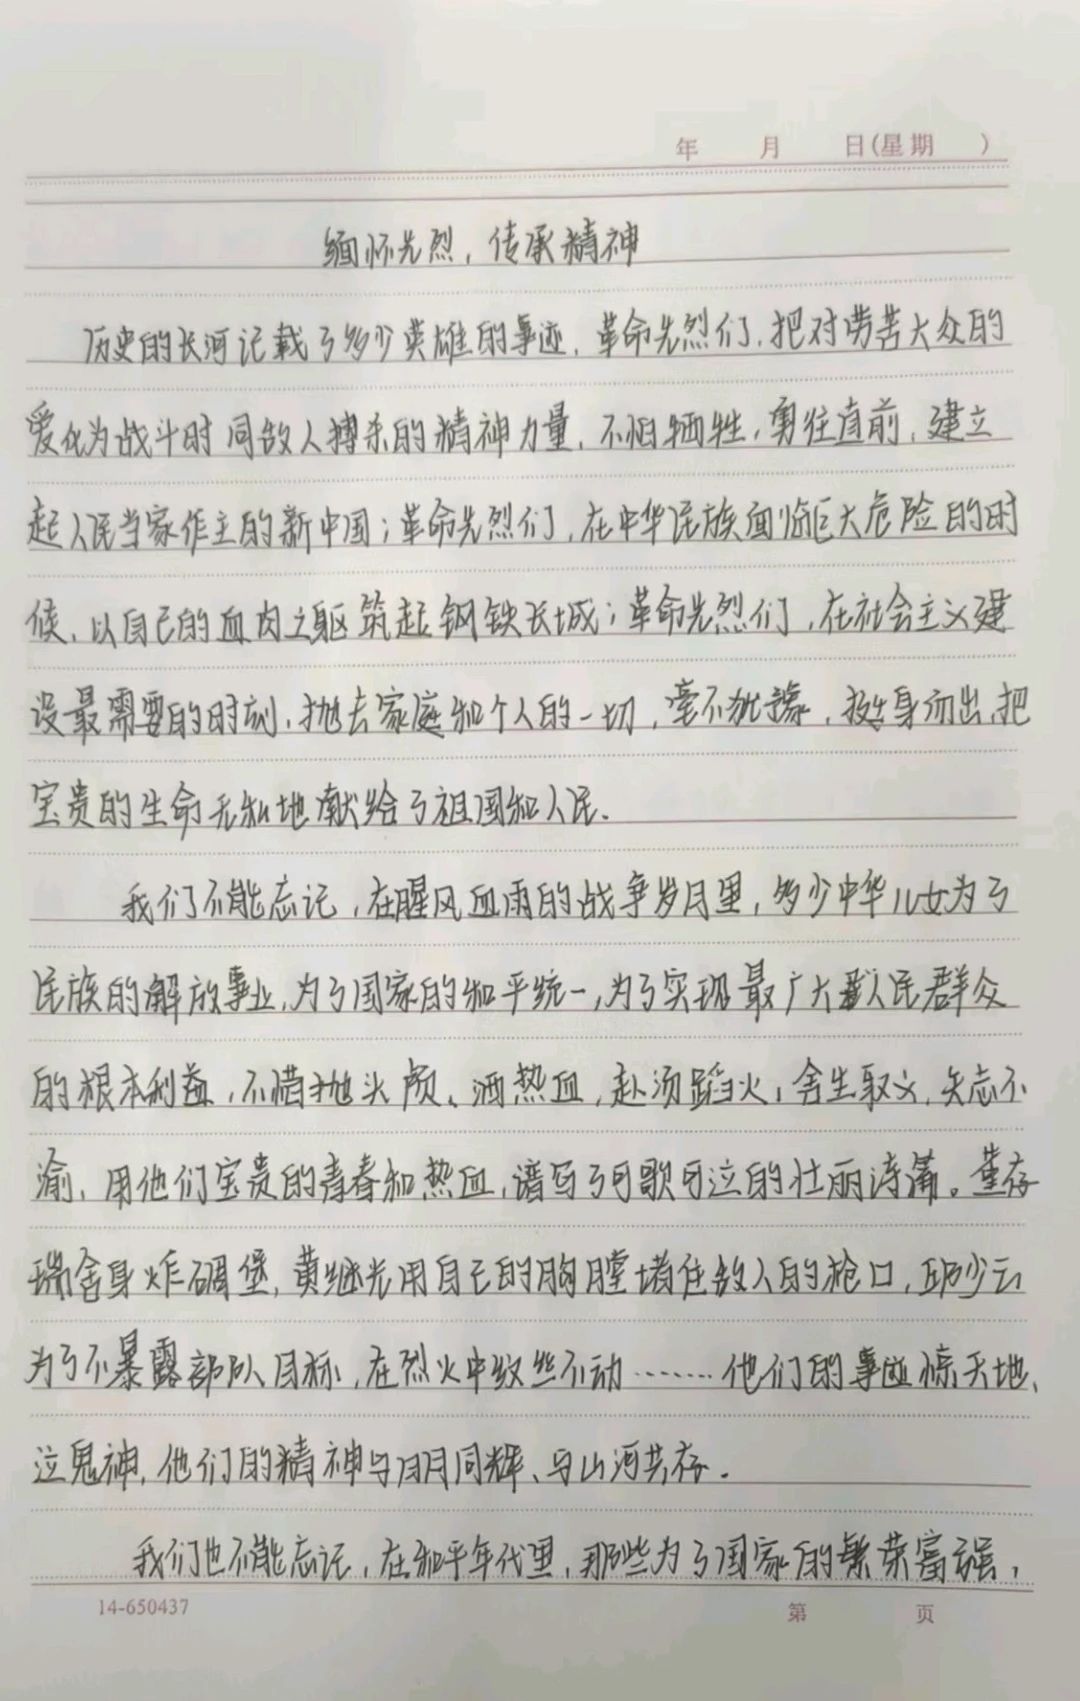 年 月 日(星期 )
缅怀先烈，传承精神
历史的长河记载了多少英雄的事迹，革命先烈们，把对劳苦大众的
爱化为战斗时同敌人搏杀的精神力量，不怕牺牲，勇往直前，建立
起人民当家作主的新中国；革命先烈们，在中华民族面临巨大危险的时
候，以自己的血肉之躯筑起钢铁长城；革命先烈们，在社会主义建
设最需要的时刻，抛去家庭和个人的一切，毫不犹豫，挺身而出，把
宝贵的生命无私地献给了祖国和人民.
我们不能忘记，在腥风血雨的战争岁月里，多少中华儿女为了
民族的解放事业，为了国家的和平统一，为了实现最广大人民群众
的根本利益，不惜抛头颅、洒热血，赴汤蹈火，舍生取义，矢志不
渝，用他们宝贵的青春和热血，谱写了可歌可泣的壮丽诗篇。董存
瑞舍身炸碉堡，黄继光用自己的胸膛堵住敌人的枪口，邱少云
为了不暴露部队目标，在烈火中纹丝不动……他们的事迹惊天地、
泣鬼神，他们的精神与日月同辉、与山河共存.
我们也不能忘记，在和平年代里，那些为了国家的繁荣富强，
14-650437 第 页